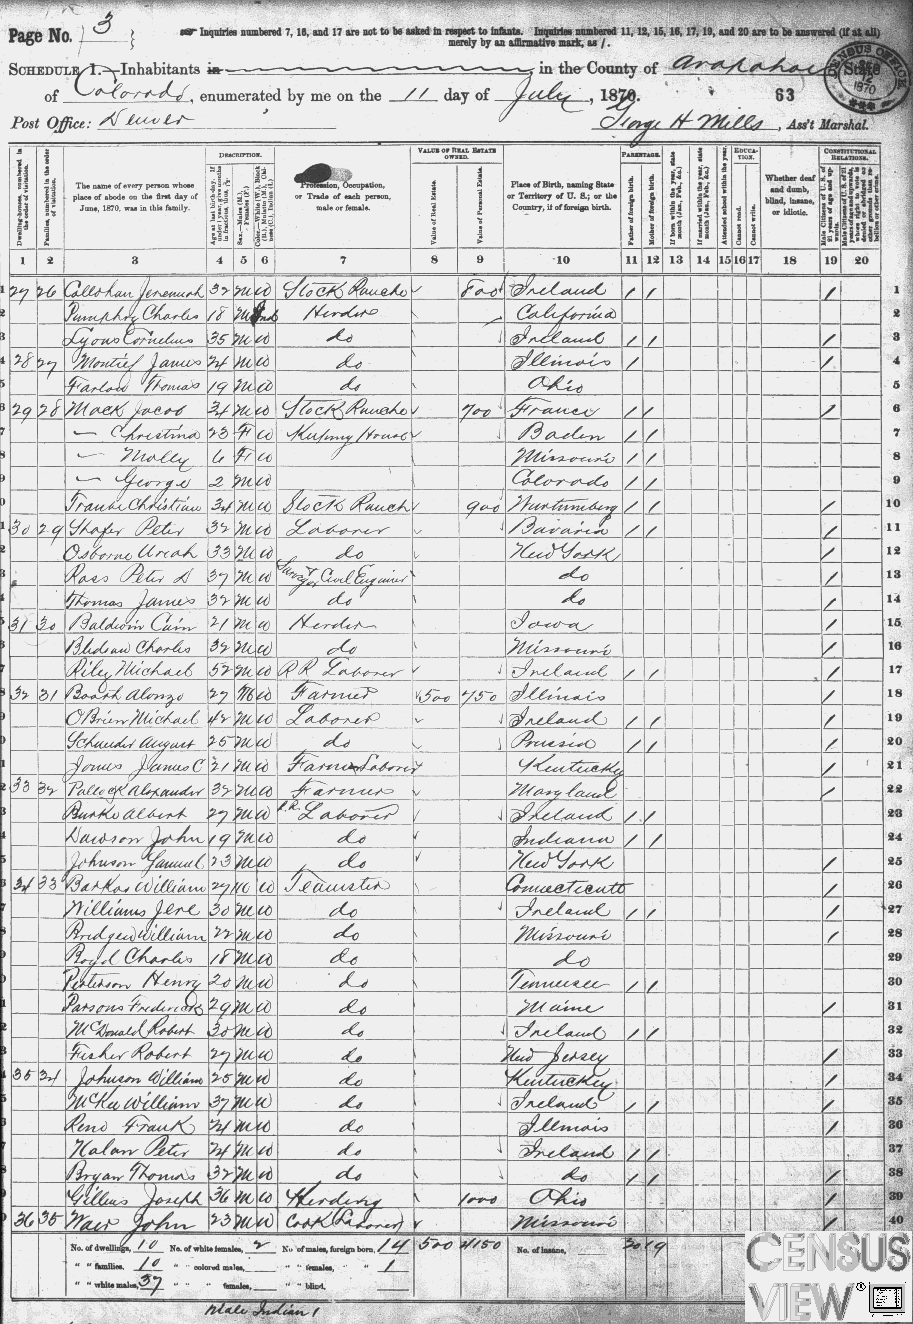 Page No. 3
Inquiries numbered 7, 16, and 17 are not to be asked in respect to infants. Inquiries numbered 11, 12, 15, 16, 17, 19, and 20 are to be answered (if at all)
merely by an affirmative mark, as /.
SCHEDULE 1.—Inhabitants in in the County of Arapahoe, State
of Colorado, enumerated by me on the 11 day of July, 1870. 63
Post Office: Denver George H Mills, Ass't Marshal.
CENSUS OFFICE 1870
The name of every person whose place of abode on the first day of June, 1870, was in this family.
DESCRIPTION.
Profession, Occupation, or Trade of each person, male or female.
VALUE OF REAL ESTATE OWNED.
Value of Real Estate.
Value of Personal Estate.
Place of Birth, naming State or Territory of U. S.; or the Country, if of foreign birth.
PARENTAGE.
Father of foreign birth.
Mother of foreign birth.
EDUCATION.
Attended school within the year.
Cannot read.
Cannot write.
Whether deaf and dumb, blind, insane, or idiotic.
CONSTITUTIONAL RELATIONS.
1 2 3 4 5 6 7 8 9 10 11 12 13 14 15 16 17 18 19 20
1 27 26 Callohan Jeremiah 32 M W Stock Rancho 800 Ireland / / / 1
2 Pumphry Charles 18 M Ind Herder California 2
3 Lyons Cornelius 35 M W do Ireland / / / 3
4 28 27 James 24 M W do Illinois / / 4
5 Farlow Thomas 19 M W do Ohio 5
6 29 28 Mack Jacob 34 M W Stock Rancho 700 France / / / 6
7 — Christina 23 F W Keeping House Baden / / 7
8 — Molly 6 F W Missouri / / 8
9 — George 2 M W Colorado / / 9
10 Traube Christian 34 M W Stock Ranch 900 Wurtumberg / / / 10
11 30 29 Shafer Peter 32 M W Laborer Bavaria / / / 11
12 Osborne Uriah 33 M W do New York / 12
13 Ross Peter D 37 M W Surveyor & Civil Engineer do / 13
14 Thomas James 32 M W do do / 14
15 31 30 Baldwin Cain 21 M W Herder Iowa / 15
16 Charles 32 M W do Missouri / 16
17 Riley Michael 52 M W R R Laborer Ireland / / / 17
18 32 31 Booth Alonzo 27 M W Farmer 500 750 Illinois / 18
19 O'Brien Michael 42 M W Laborer Ireland / / / 19
20 Schneider August 25 M W do Prussia / / / 20
21 Jones James C 21 M W Farm Laborer Kentucky / 21
22 33 32 Pollock Alexander 32 M W Farmer Maryland / 22
23 Burke Albert 27 M W R.R. Laborer Ireland / / 23
24 Dawson John 19 M W do Indiana / / 24
25 Johnson Samuel 23 M W do New York / 25
26 34 33 Barkas William 27 M W Teamster Connecticutt / 26
27 Williams Jere 30 M W do Ireland / / / 27
28 William 22 M W do Missouri / 28
29 Boyd Charles 18 M W do do 29
30 Peterson Henry 20 M W do Tennessee / / 30
31 Parsons Frederick 29 M W do Maine / 31
32 McDonald Robert 30 M W do Ireland / / 32
33 Fisher Robert 27 M W do New Jersey / 33
34 35 34 Johnson William 25 M W do Kentucky / 34
35 McKee William 37 M W do Ireland / / / 35
36 Reno Frank 24 M W do Illinois / 36
37 Nolan Peter 24 M W do Ireland / / 37
38 Bryan Thomas 32 M W do do / / / 38
39 Joseph 36 M W Herding 1000 Ohio / 39
40 36 35 John 23 M W Cook (Laborer) Missouri / 40
No. of dwellings, 10 No. of white females, 2 No. of males, foreign born, 14 500 4150 No. of insane, 20 19
" " families, 10 " " colored males, " " females, " " 1
" " white males, 37 " " females, " " blind.
Male Indian 1
CENSUS
VIEW